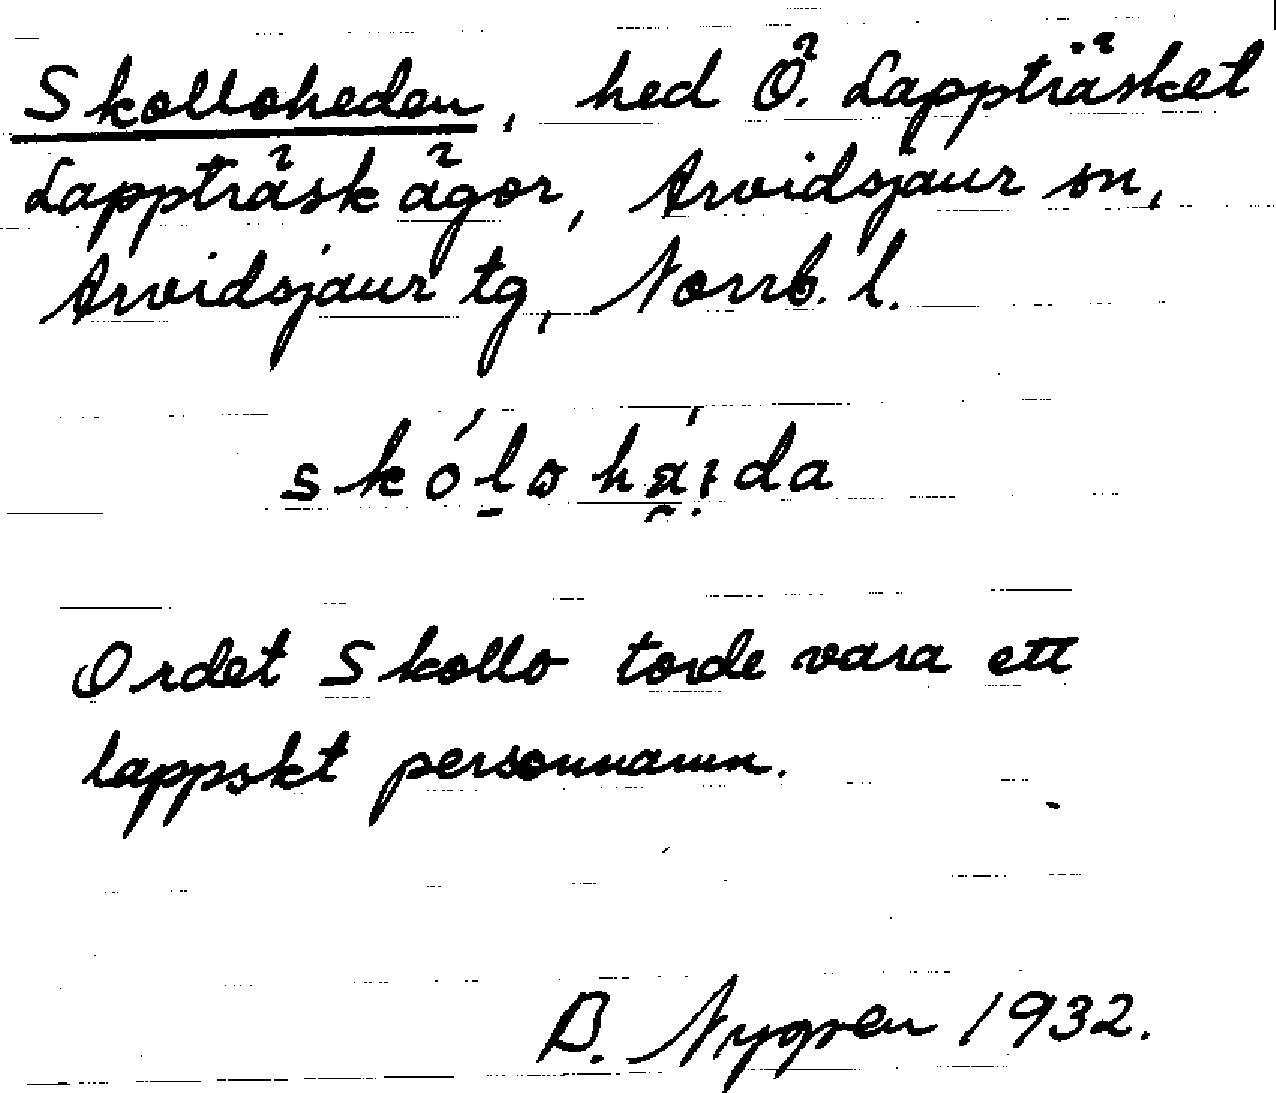 Skolloheden, hed Ö. Lappträsket
Lappträsk ägor, Arvidsjaur sn,
Arvidsjaur tg, Norrb. l.
Ordet Skollo torde vara ett
lappskt personnamn.
B. Nygren 1932.